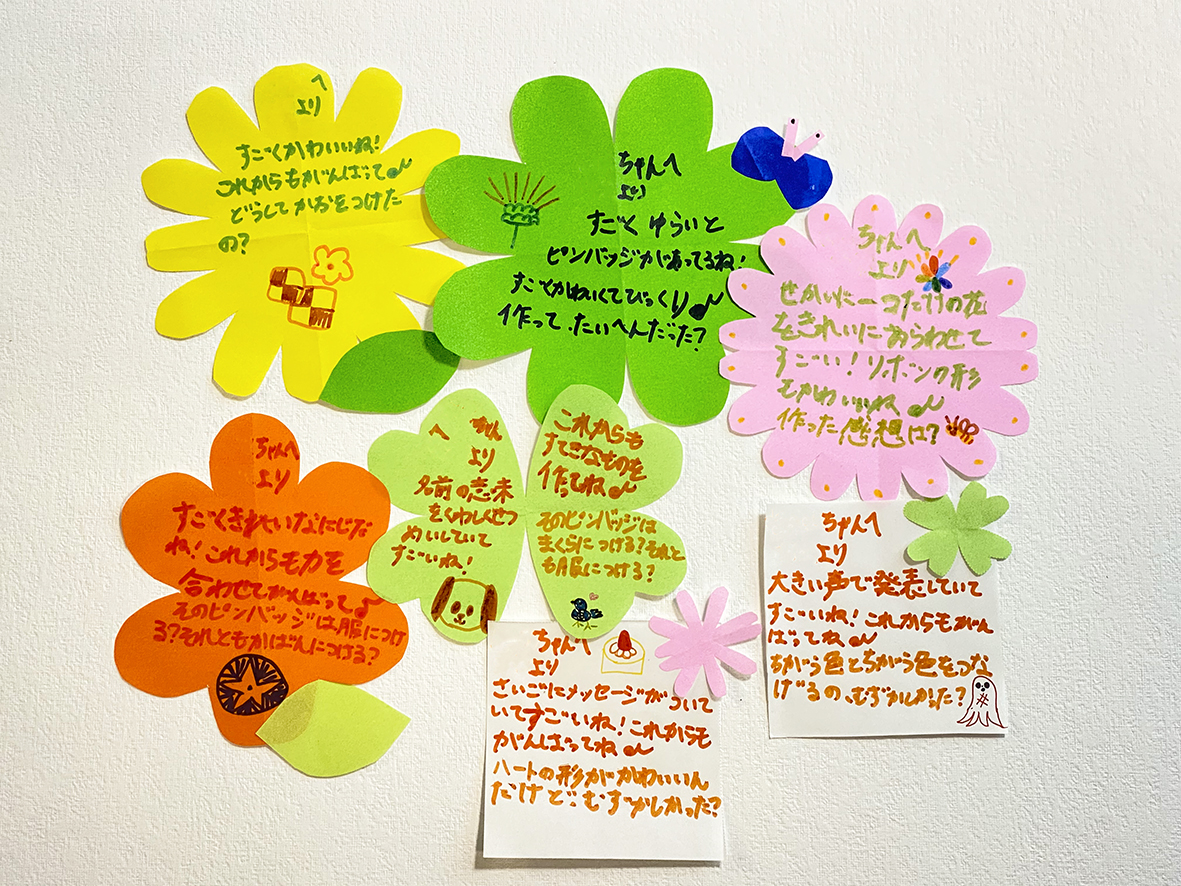 へ
より
すごくかわいいね!
これからもがんばって♪
どうしてかおをつけた
の?
ちゃんへ
より
すごく ゆらいと
ピンバッジがあってるね!
すごくかわいくてびっくり♪
作って、たいへんだった?
ちゃんへ
より
せかいに一つだけの花
をきれいにあらわせて
すごい!リボンの形
もかわいいね♪
作った感想は?
ちゃんへ
より
すごくきれいなにじだ
ね!これからも力を
合わせてがんばって♪
そのピンバッジは服につけ
る?それともかばんにつける?
ちゃん
へ
より
名前の意味
をくわしくせつ
めいしていて
すごいね!
これからも
すてきなものを
作ってね♪
そのピンバッジは
まくらにつける?それと
も服につける?
ちゃんへ
より
さいごにメッセージがついて
いてすごいね!これからも
がんばってね♪
ハートの形がかわいいん
だけど、むずかしかった?
ちゃんへ
より
大きい声で発表していて
すごいね!これからもがん
ばってね♪
ちがう色とちがう色をつな
げるの、むずかしかった?